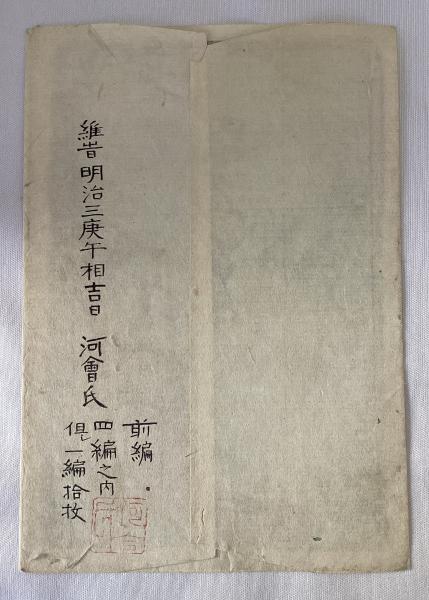 維旹明治三庚午相吉日 河會氏
前編
四編之内
但し一編拾枚